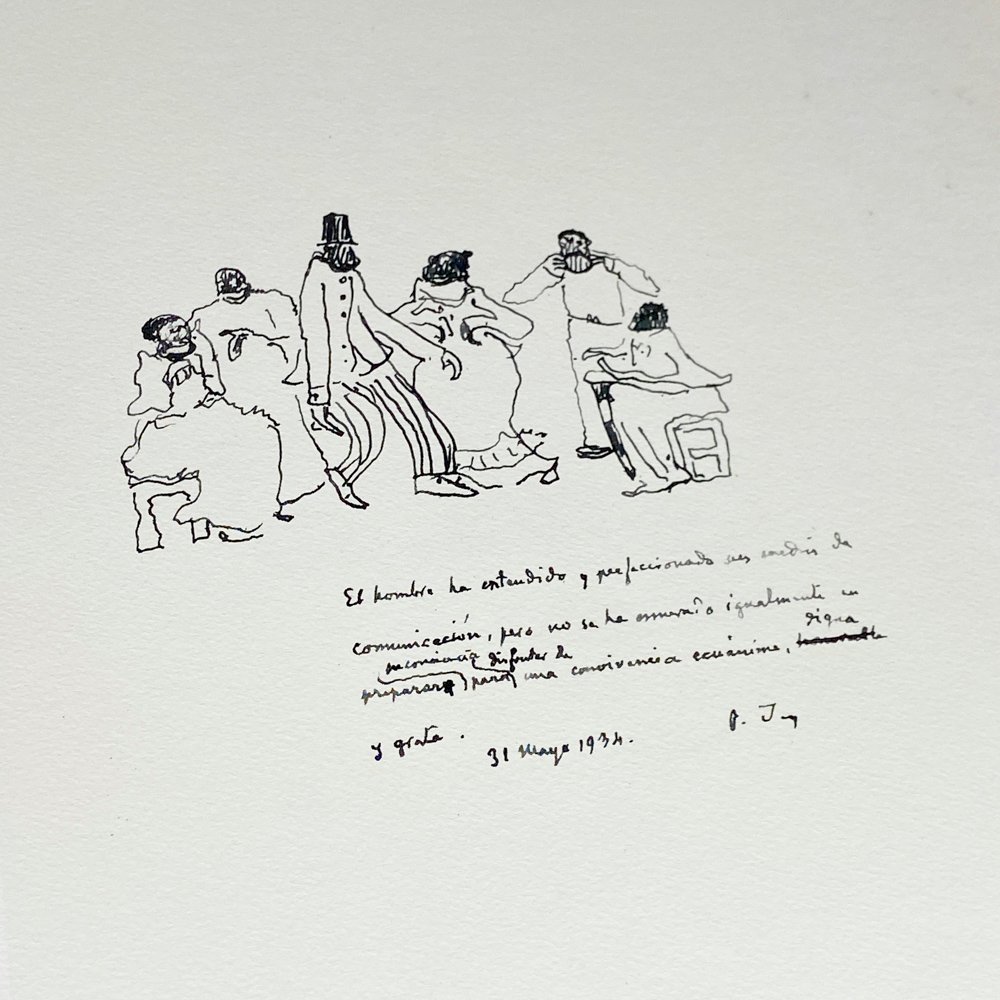 El hombre ha extendido y perfeccionado sus medios de
comunicación, pero no se ha esmerado igualmente en
su conciencia disfrutar de digna
preparar para una convivencia ecuánime, honorable
y grata.
31 Mayo 1934.